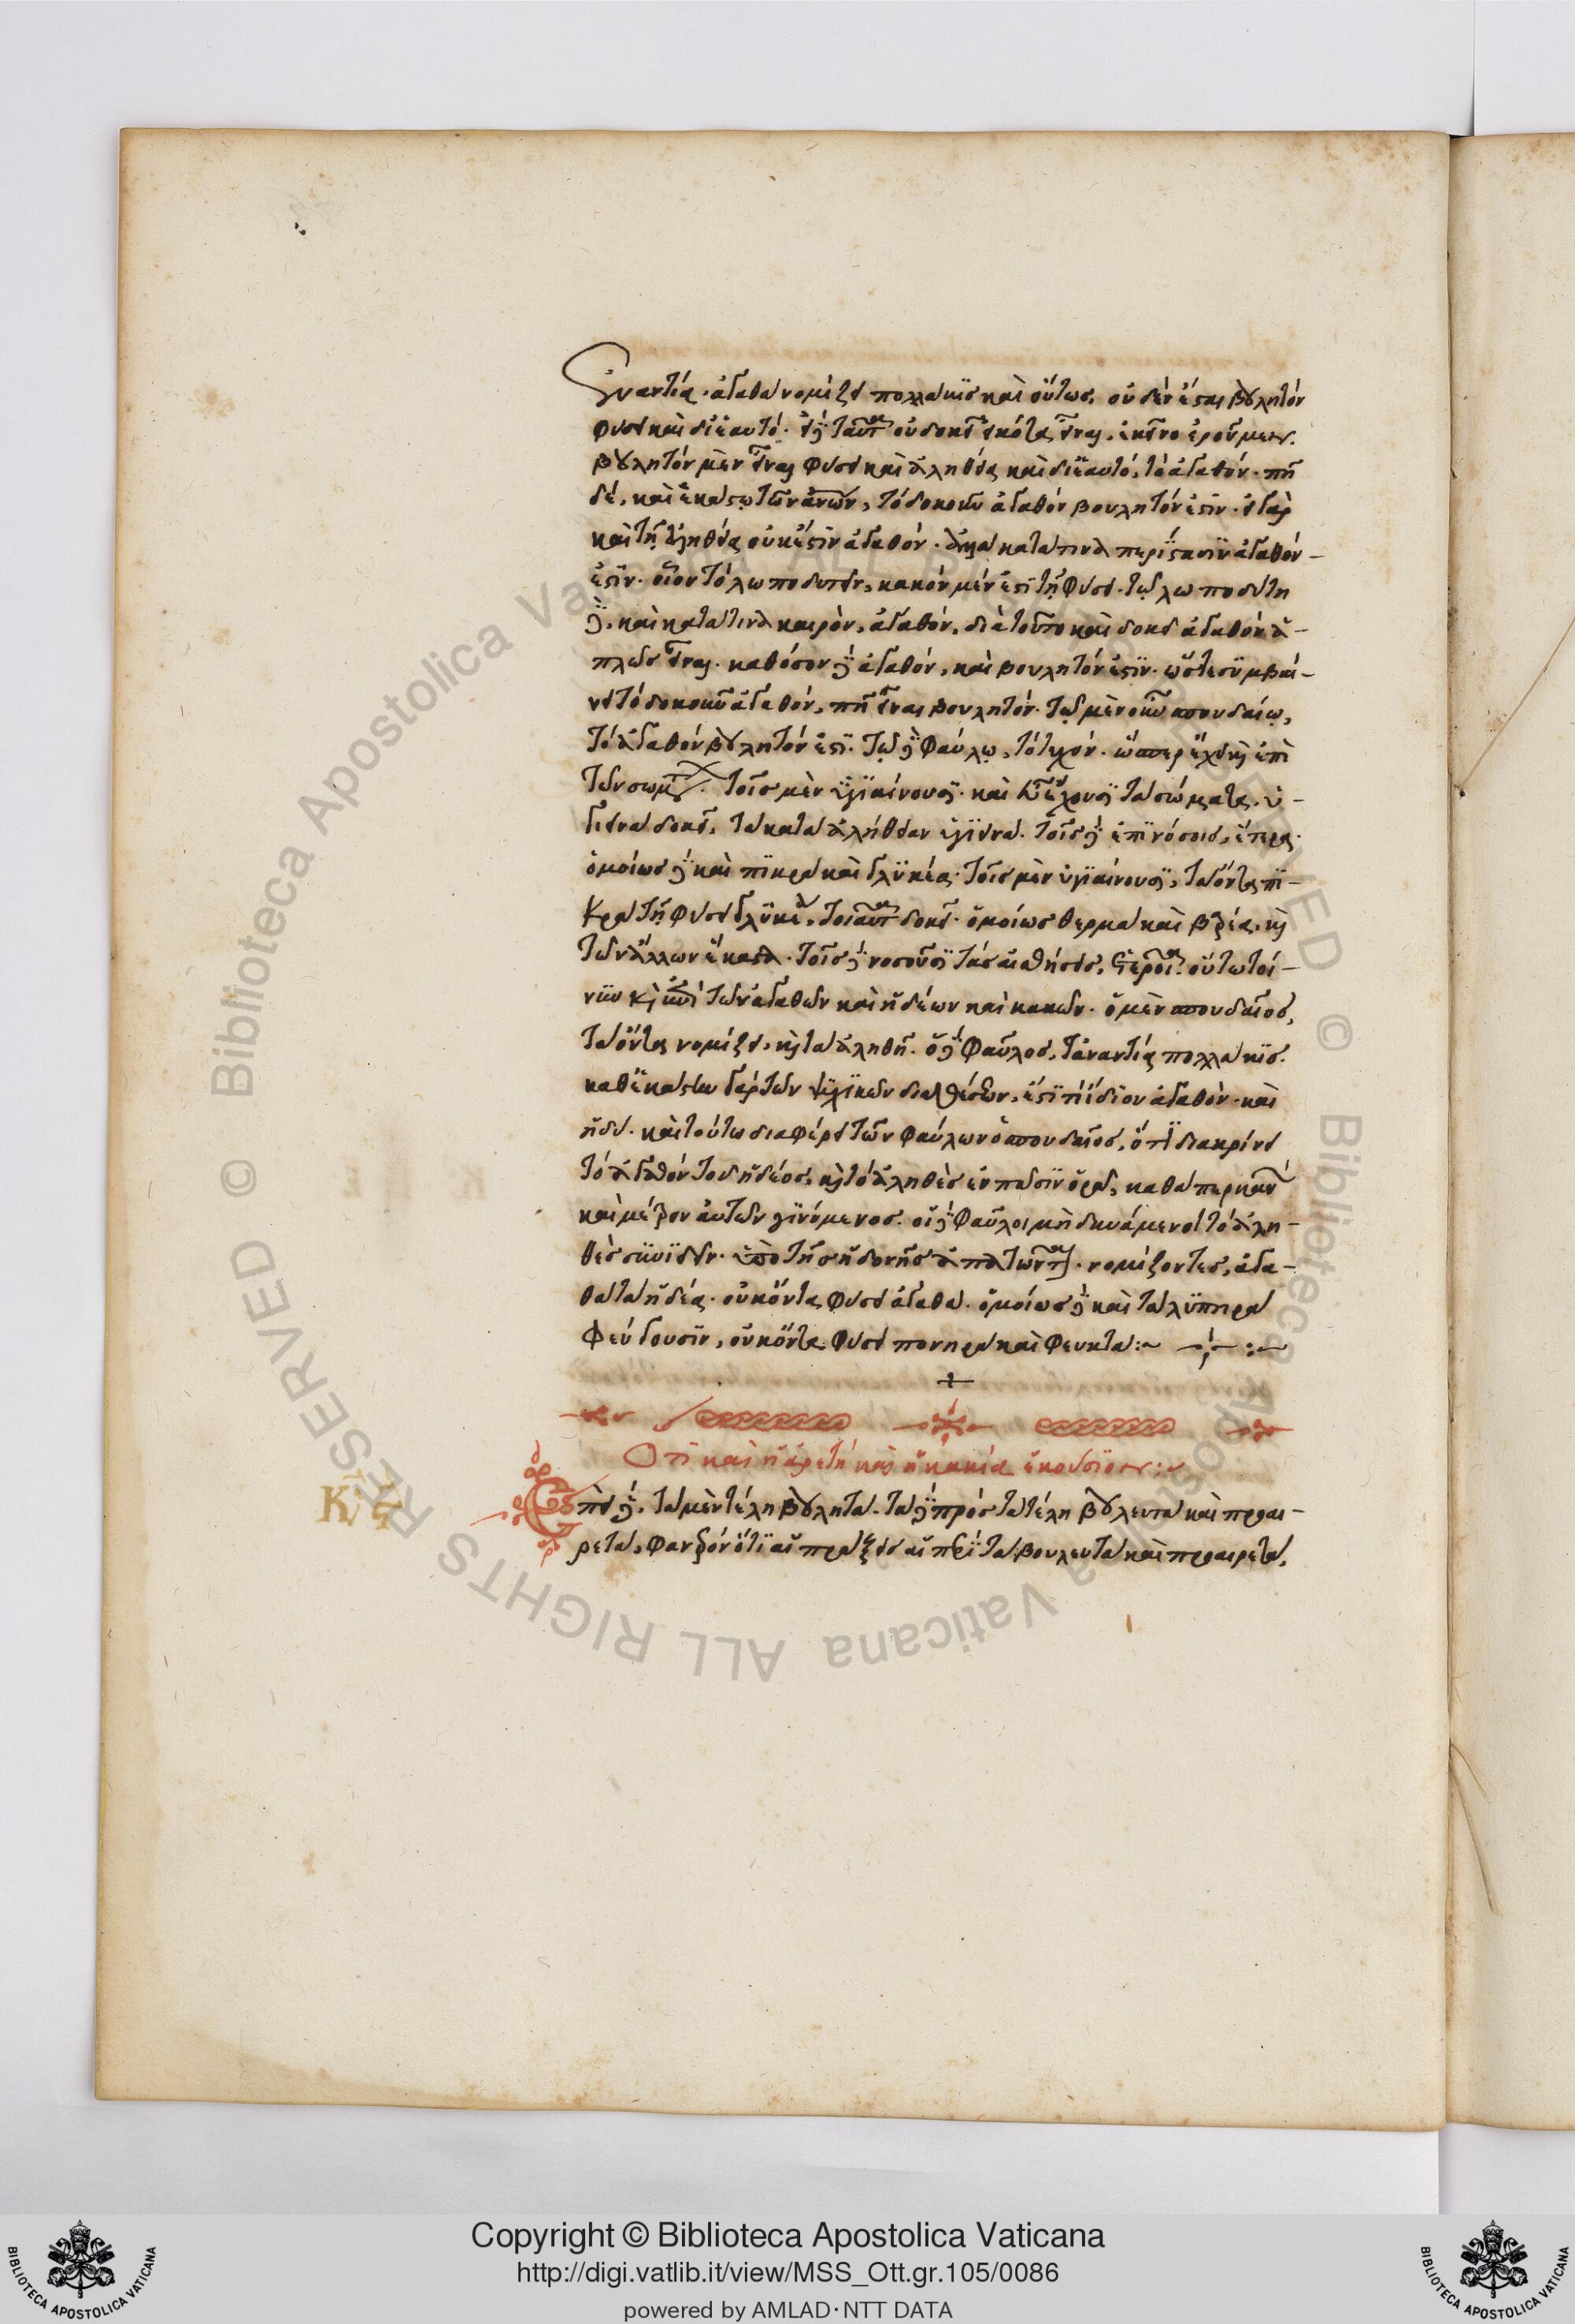 ἐναντία. ἀγαθὰ νομίζει πολλάκις καὶ οὕτως, οὐδὲν ἔσται βουλητὸν
φύσει καὶ δι' ἑαυτό. εἰ δὲ ταῦτα οὐ δοκεῖ εἰκότα εἶναι, ἐκεῖνο ἐροῦμεν.
βουλητὸν μὲν εἶναι φύσει καὶ ἀληθείᾳ καὶ δι' ἑαυτό, τὸ ἀγαθόν. πῆ
δέ, καὶ ἑκάστῳ τῶν ἀνων, τὸ δοκοῦν ἀγαθὸν βουλητόν ἐστιν. εἰ γὰρ
καὶ τῇ ἀληθείᾳ οὐκ ἔστιν ἀγαθόν. ἀλλὰ κατά τινα περίστασιν ἀγαθόν
ἐστιν. οἷον τὸ λωποδυτεῖν, κακὸν μέν ἐστι τῇ φύσει. τῷ λωποδύτῃ
δέ, καὶ κατά τινα καιρὸν, ἀγαθόν. διὰ τοῦτο καὶ δοκεῖ ἀγαθὸν ἁ-
πλῶς εἶναι. καθόσον δὲ ἀγαθόν, καὶ βουλητόν ἐστιν. ὥστε συμβαί-
νει τὸ δοκοῦν ἀγαθόν, πῆ εἶναι βουλητόν. τῷ μὲν οὖν σπουδαίῳ,
τὸ ἀγαθὸν βουλητόν ἐστι. τῷ δὲ φαύλῳ, τὸ τυχόν. ὥσπερ ἔχει καὶ ἐπὶ
τῶν σωμάτων. τοῖς μὲν ὑγιαίνουσι. καὶ εὖ ἔχουσι τὰ σώματα. ὑ-
γιεινὰ δοκεῖ, τὰ κατὰ ἀλήθειαν ὑγιεινά. τοῖς δὲ ἐπινόσοις, ἕτερα.
ὁμοίως δὲ καὶ πικρὰ καὶ γλυκέα. τοῖς μὲν ὑγιαίνουσι, τὰ ὄντα πι-
κρὰ τῇ φύσει γλυκέα, τοιαῦτα δοκεῖ. ὁμοίως θερμὰ καὶ βαρέα. καὶ
τῶν ἄλλων ἕκαστα. τοῖς δὲ νοσοῦσι τὰς αἰσθήσεις, ἑτεροῖα. οὕτω τοί-
νυν καὶ ἐπὶ τῶν ἀγαθῶν καὶ ἡδέων καὶ κακῶν. ὁ μὲν σπουδαῖος,
τὰ ὄντα νομίζει. καὶ τὰ ἀληθῆ. ὁ δὲ φαῦλος, τἀναντία πολλάκις.
καθ' ἑκάστην γὰρ τῶν ψυχικῶν διαθέσεων, ἔστι τι ἴδιον ἀγαθόν. καὶ
ἡδύ. καὶ τούτω διαφέρει τῶν φαύλων ὁ σπουδαῖος, ὅτι διακρίνει
τὸ ἀγαθὸν τοῦ ἡδέος, καὶ τὸ ἀληθὲς ἐν πᾶσιν ὁρᾷ, καθάπερ κανὼν
καὶ μέτρον αὐτῶν γινόμενος. οἱ δὲ φαῦλοι μὴ δυνάμενοι τὸ ἀλη-
θὲς συνιδεῖν. ὑπὸ τῆς ἡδονῆς ἀπατῶνται. νομίζοντες, ἀγα-
θὰ τὰ ἡδέα. οὐκ ὄντα φύσει ἀγαθά. ὁμοίως δὲ καὶ τὰ λυπηρὰ
φεύγουσιν, οὐκ ὄντα φύσει πονηρὰ καὶ φευκτά:~
Ὅτι καὶ ἡ ἀρετὴ καὶ ἡ κακία ἑκούσιον:~
κζ
Ἐπεὶ δὲ, τὰ μὲν τέλη βουλητά. τὰ δὲ πρὸς τὰ τέλη βουλευτὰ καὶ προαι-
ρετά, φανερὸν ὅτι αἱ πράξεις αἱ περὶ τὰ βουλευτὰ καὶ προαιρετά,
Copyright © Biblioteca Apostolica Vaticana
http://digi.vatlib.it/view/MSS_Ott.gr.105/0086
powered by AMLAD·NTT DATA
BIBLIOTECA APOSTOLICA VATICANA
BIBLIOTECA APOSTOLICA VATICANA
© Biblioteca Apostolica Vaticana ALL RIGHTS RESERVED © Biblioteca Apostolica Vaticana ALL RIGHTS RESERVED